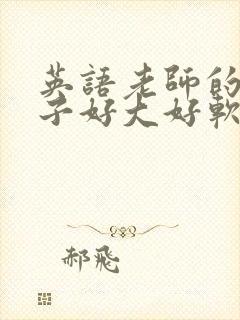 英語老師的
子好大好軟
郝飛